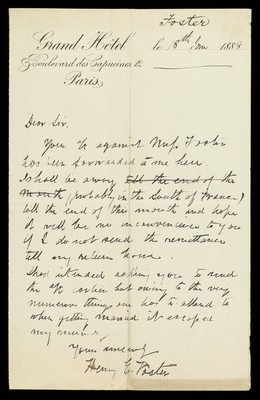 Foster
Grand Hôtel
Boulevard des Capucines, 12
Paris,
le 18th Jan 1888
Dear Sir,
Your a/c against Miss Foster
has been forwarded to me here.
I shall be away till the end of the
month (probably in the South of France)
till the end of this month and hope
it will be no inconvenience to you
if I do not send the remittance
till my return home.
I had intended asking you to send
the a/c earlier but owing to the very
numerous things one has to attend to
when getting married it escaped
my memory
Yours sincerely
Henry E. Foster